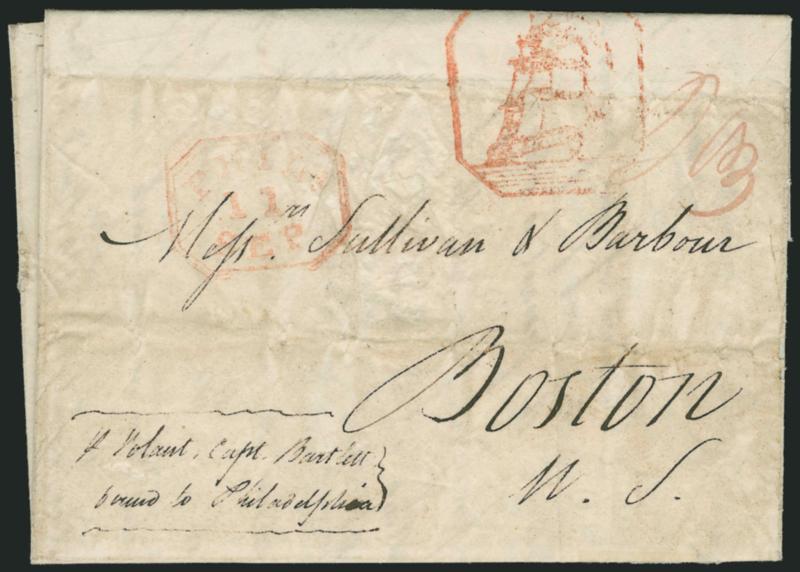 PHIL
11
SEP
Messrs. Sullivan & Barbour
Boston
U. S.
P Volant, Capt. Bartlett
bound to Philadelphia